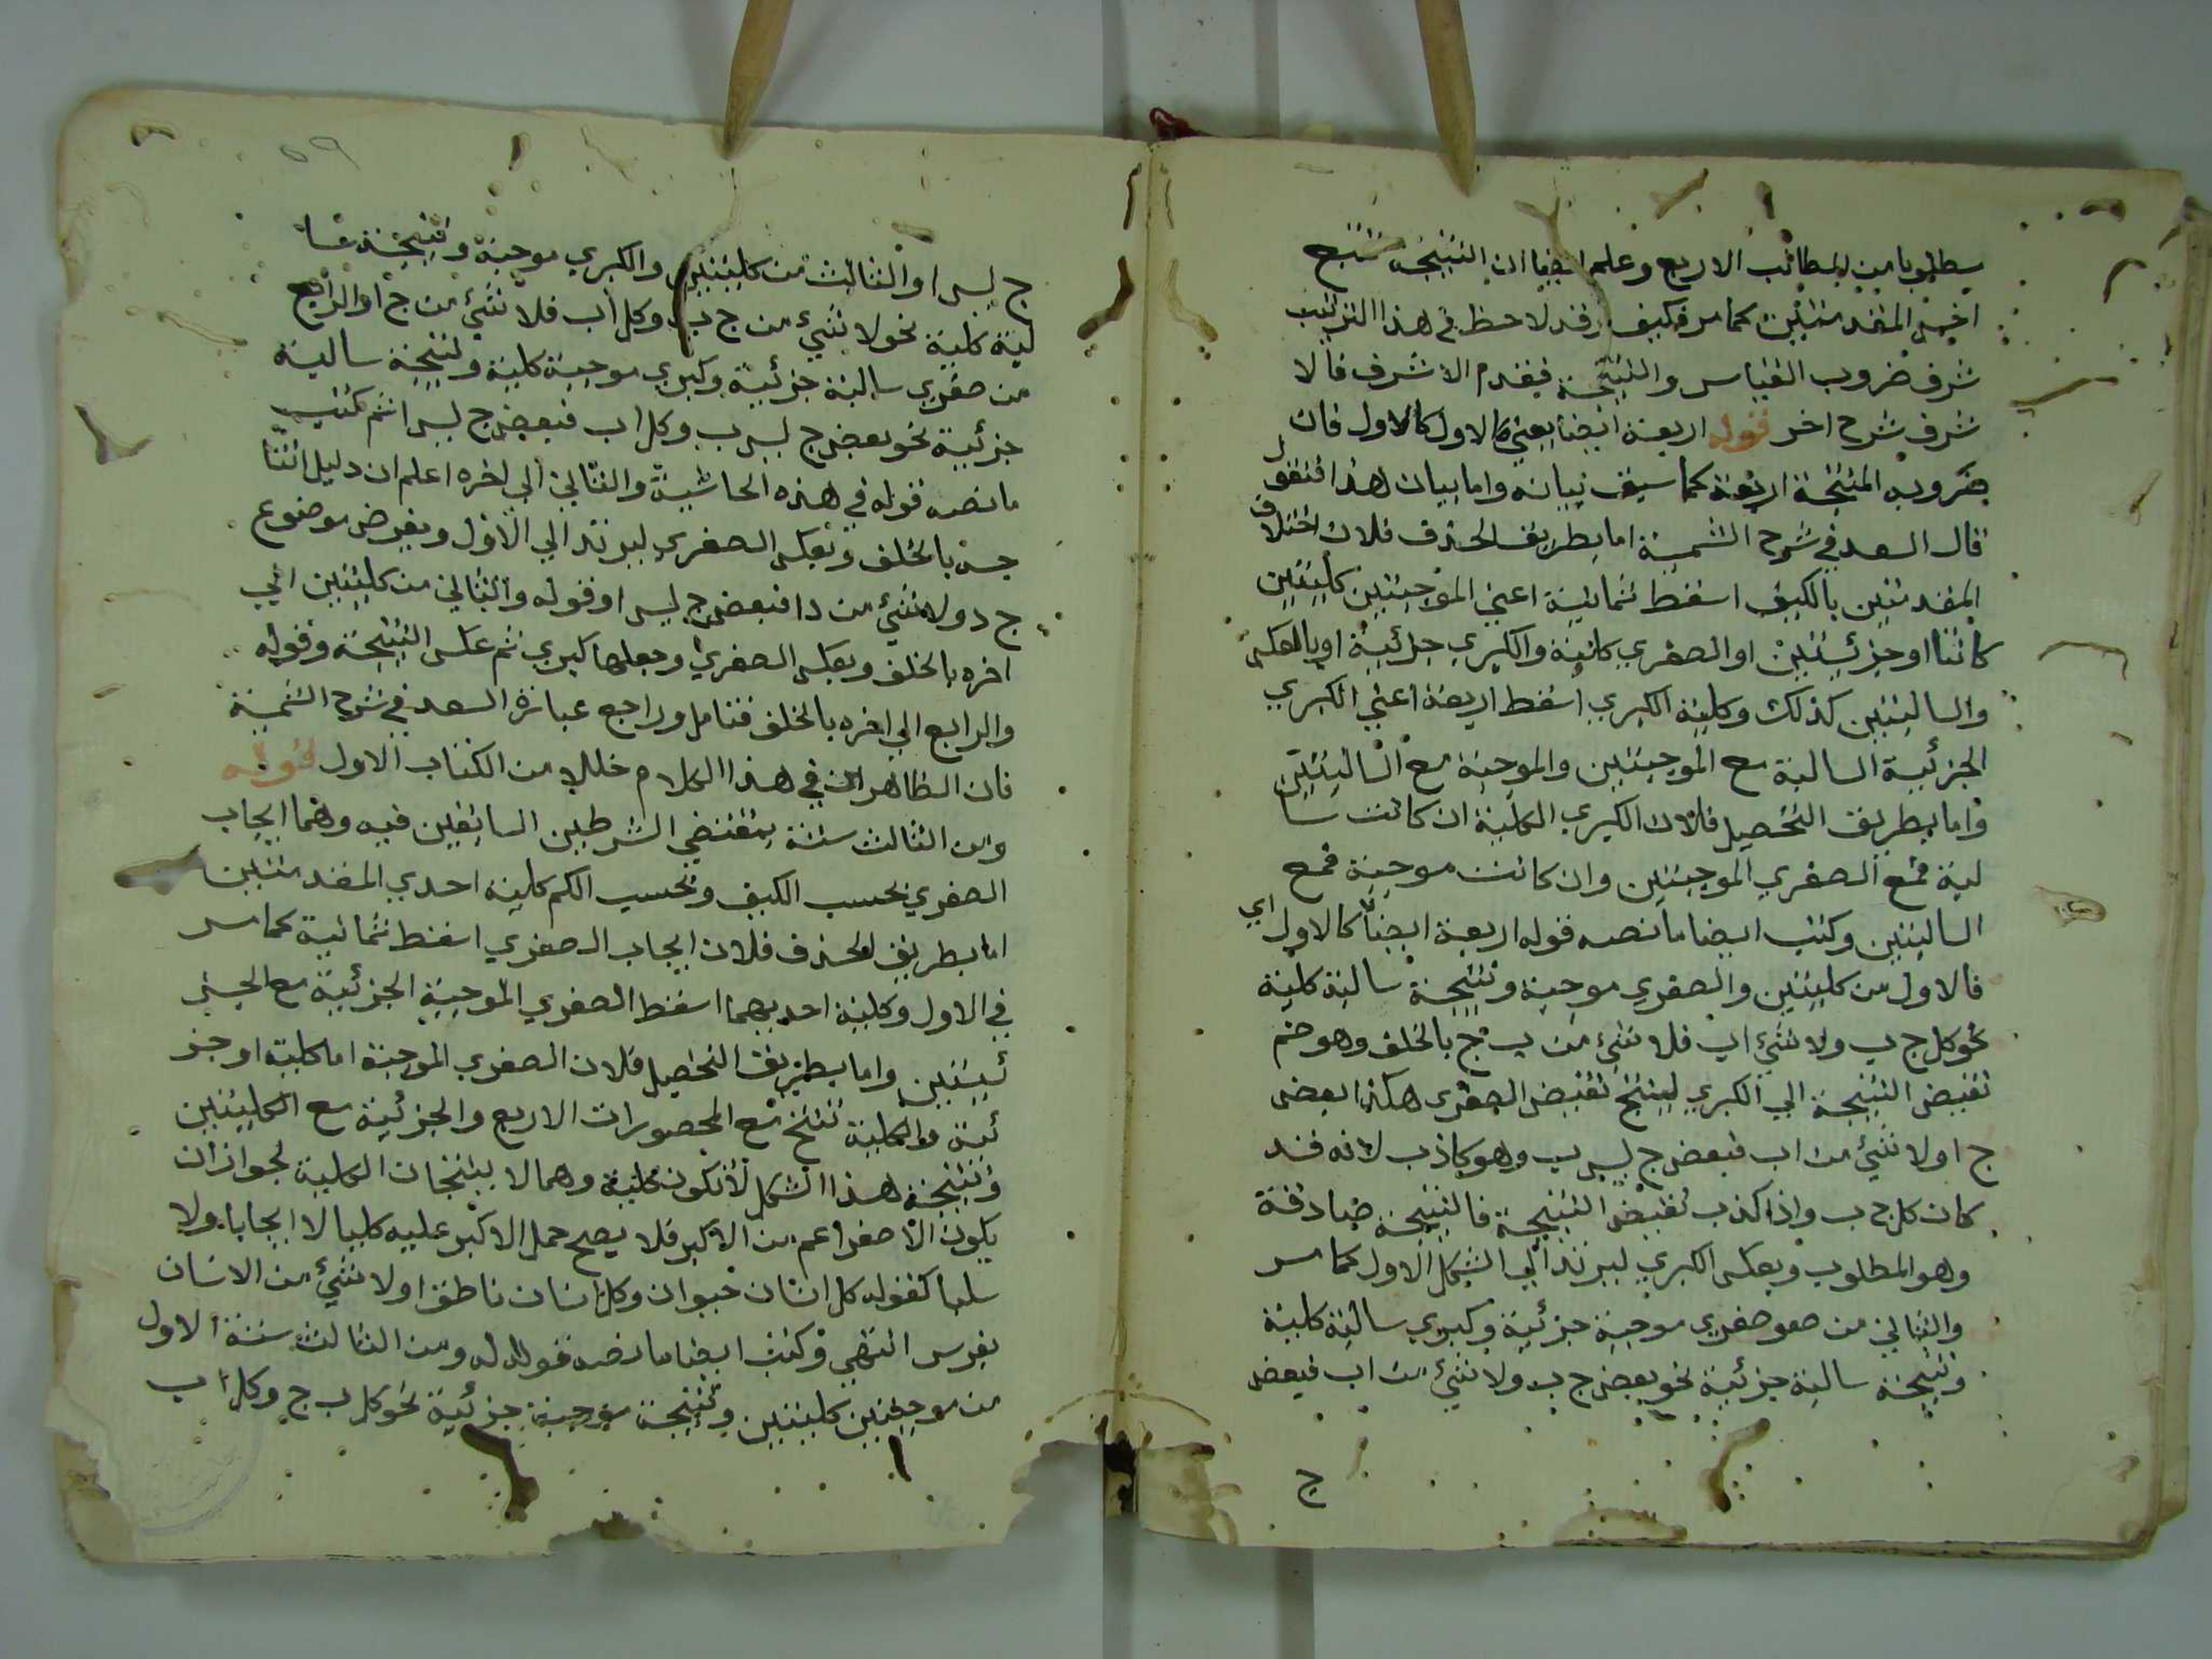 مطلوبا من المطالب الاربع وعلم ايضا ان النتيجة تتبع
اخس المقدمتين كما مر فكيف وقد لاحظ في هذا الترتيب
شرف ضروب القياس والنتيجة فيقدم الاشرف فالا
شرف شرح اخر قوله اربعة ايضا يعني كالاول كالاول فان
ضروبه المنتجة اربعة كما سيق بيانه واما بيان هذا فنقول
قال السعد في شرح الشمسية اما بطريق الحذف فلان اختلاف
المقدمتين بالكيف اسقط ثمانية اعني الموجبتين كليتين
كانتا او جزئيتين او الصغري كلية والكبري جزئية او بالعكس
والسالبتين كذلك وكلية الكبري اسقط اربعة اعني الكبري
الجزئية السالبة مع الموجبتين والموجبة مع السالبتين
واما بطريق التحصيل فلان الكبري الكلية ان كانت سا
لبة فمع الصغري الموجبتين وان كانت موجبة فمع
السالبتين وكتب ايضا ما نصه قوله اربعة ايضا كالاول اي
فالاول من كليتين والصغري موجبة ونتيجة سالبة كلية
نحو كل ج ب ولا شيء اب فلا شيء من ب ج بالخلف وهو ضم
نقيض النتيجة الي الكبري لينتج نقيض الصغري هكذا بعض
ج ا ولا شيء من اب فبعض ج ليس ب وهو كاذب لانه قد
كان كل ج ب واذا كذب نقيض النتيجة فالنتيجة صادقة
وهو المطلوب وبعكس الكبري ليرتد الي الشكل الاول كما مر
والثاني من صغو صغري موجبة جزئية وكبري سالبة كلية
ونتيجة سالبة جزئية نحو بعض ج ب ولا شيء من اب فبعض
ج
٥٩
ج ليس ا والثالث من كليتين والكبري موجبة ونتيجة سا
لبة كلية نحو لا شيء من ج ب وكل اب فلا شيء من ج ا والرابع
من صغري سالبة جزئية وكبري موجبة كلية ونتيجة سالبة
جزئية نحو بعض ج ليس ب وكل اب فبعض ج ليس ا ثم كتب
ما نصه قوله في هذه الحاشية والثاني الي اخره اعلم ان دليل انتا
جه بالخلف وبعكس الصغري ليرتد الي الاول وبفرض موضوع
ج د ولا شيء من دا فبعض ج ليس ا وقوله والثاني من كليتين الي
اخره بالخلف وبعكس الصغري وجعلها كبري ثم عكس النتيجة وقوله
والرابع الي اخره بالخلف فتامل وراجع عبارة السعد في شرح الشمسية
فان الظاهر ان في هذا الكلام خللا من الكتاب الاول قوله
ومن الثالث ستة بمقتضي الشرطين السابقين فيه وهما ايجاب
الصغري بحسب الكيف وبحسب الكم كلية احدي المقدمتين
اما بطريق الحذف فلان ايجاب الصغري اسقط ثمانية كما مر
في الاول وكلية احديهما اسقط الصغري الموجبة الجزئية مع الجز
ئيتين واما بطريق التحصيل فلان الصغري الموجبة اما كلية او جز
ئية والكلية تنتج مع المحصورات الاربع والجزئية مع الكليتين
ونتيجة هذا الشكل لا تكون كلية وهما لا ينتجان الكلية لجواز ان
يكون الاصغر اعم من الاكبر فلا يصح حمل الاكبر عليه كليا لا ايجابا ولا
سلبا كقوله كل انسان حيوان وكل انسان ناطق او لا شيء من الانسان
بفرس انتهي وكتب ايضا ما نصه قوله له ومن الثالث ستة الاول
من موجبتين كليتين ونتيجة موجبة جزئية نحو كل ب ج وكل اب